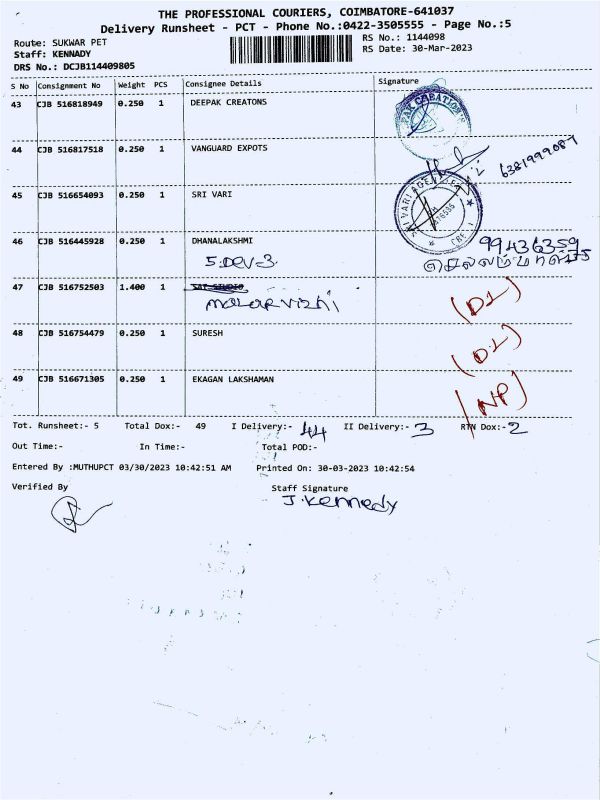 THE PROFESSIONAL COURIERS, COIMBATORE-641037
Delivery Runsheet - PCT - Phone No.:0422-3505555 - Page No.:5
Route: SUKWAR PET
RS No.: 1144098
Staff: KENNADY
RS Date: 30-Mar-2023
DRS No.: DCJB114409805
S No Consignment No Weight PCS Consignee Details Signature
43 CJB 516818949 0.250 1 DEEPAK CREATONS
44 CJB 516817518 0.250 1 VANGUARD EXPOTS
6381999087
45 CJB 516654093 0.250 1 SRI VARI
46 CJB 516445928 0.250 1 DHANALAKSHMI
99436359
75
47 CJB 516752503 1.400 1
(D2)
48 CJB 516754479 0.250 1 SURESH
(D2)
49 CJB 516671305 0.250 1 EKAGAN LAKSHAMAN
(NP)
Tot. Runsheet:- 5 Total Dox:- 49 I Delivery:- 44 II Delivery:- 3 RTN Dox:- 2
Out Time:- In Time:- Total POD:-
Entered By :MUTHUPCT 03/30/2023 10:42:51 AM Printed On: 30-03-2023 10:42:54
Verified By
Staff Signature
J. Kennedy